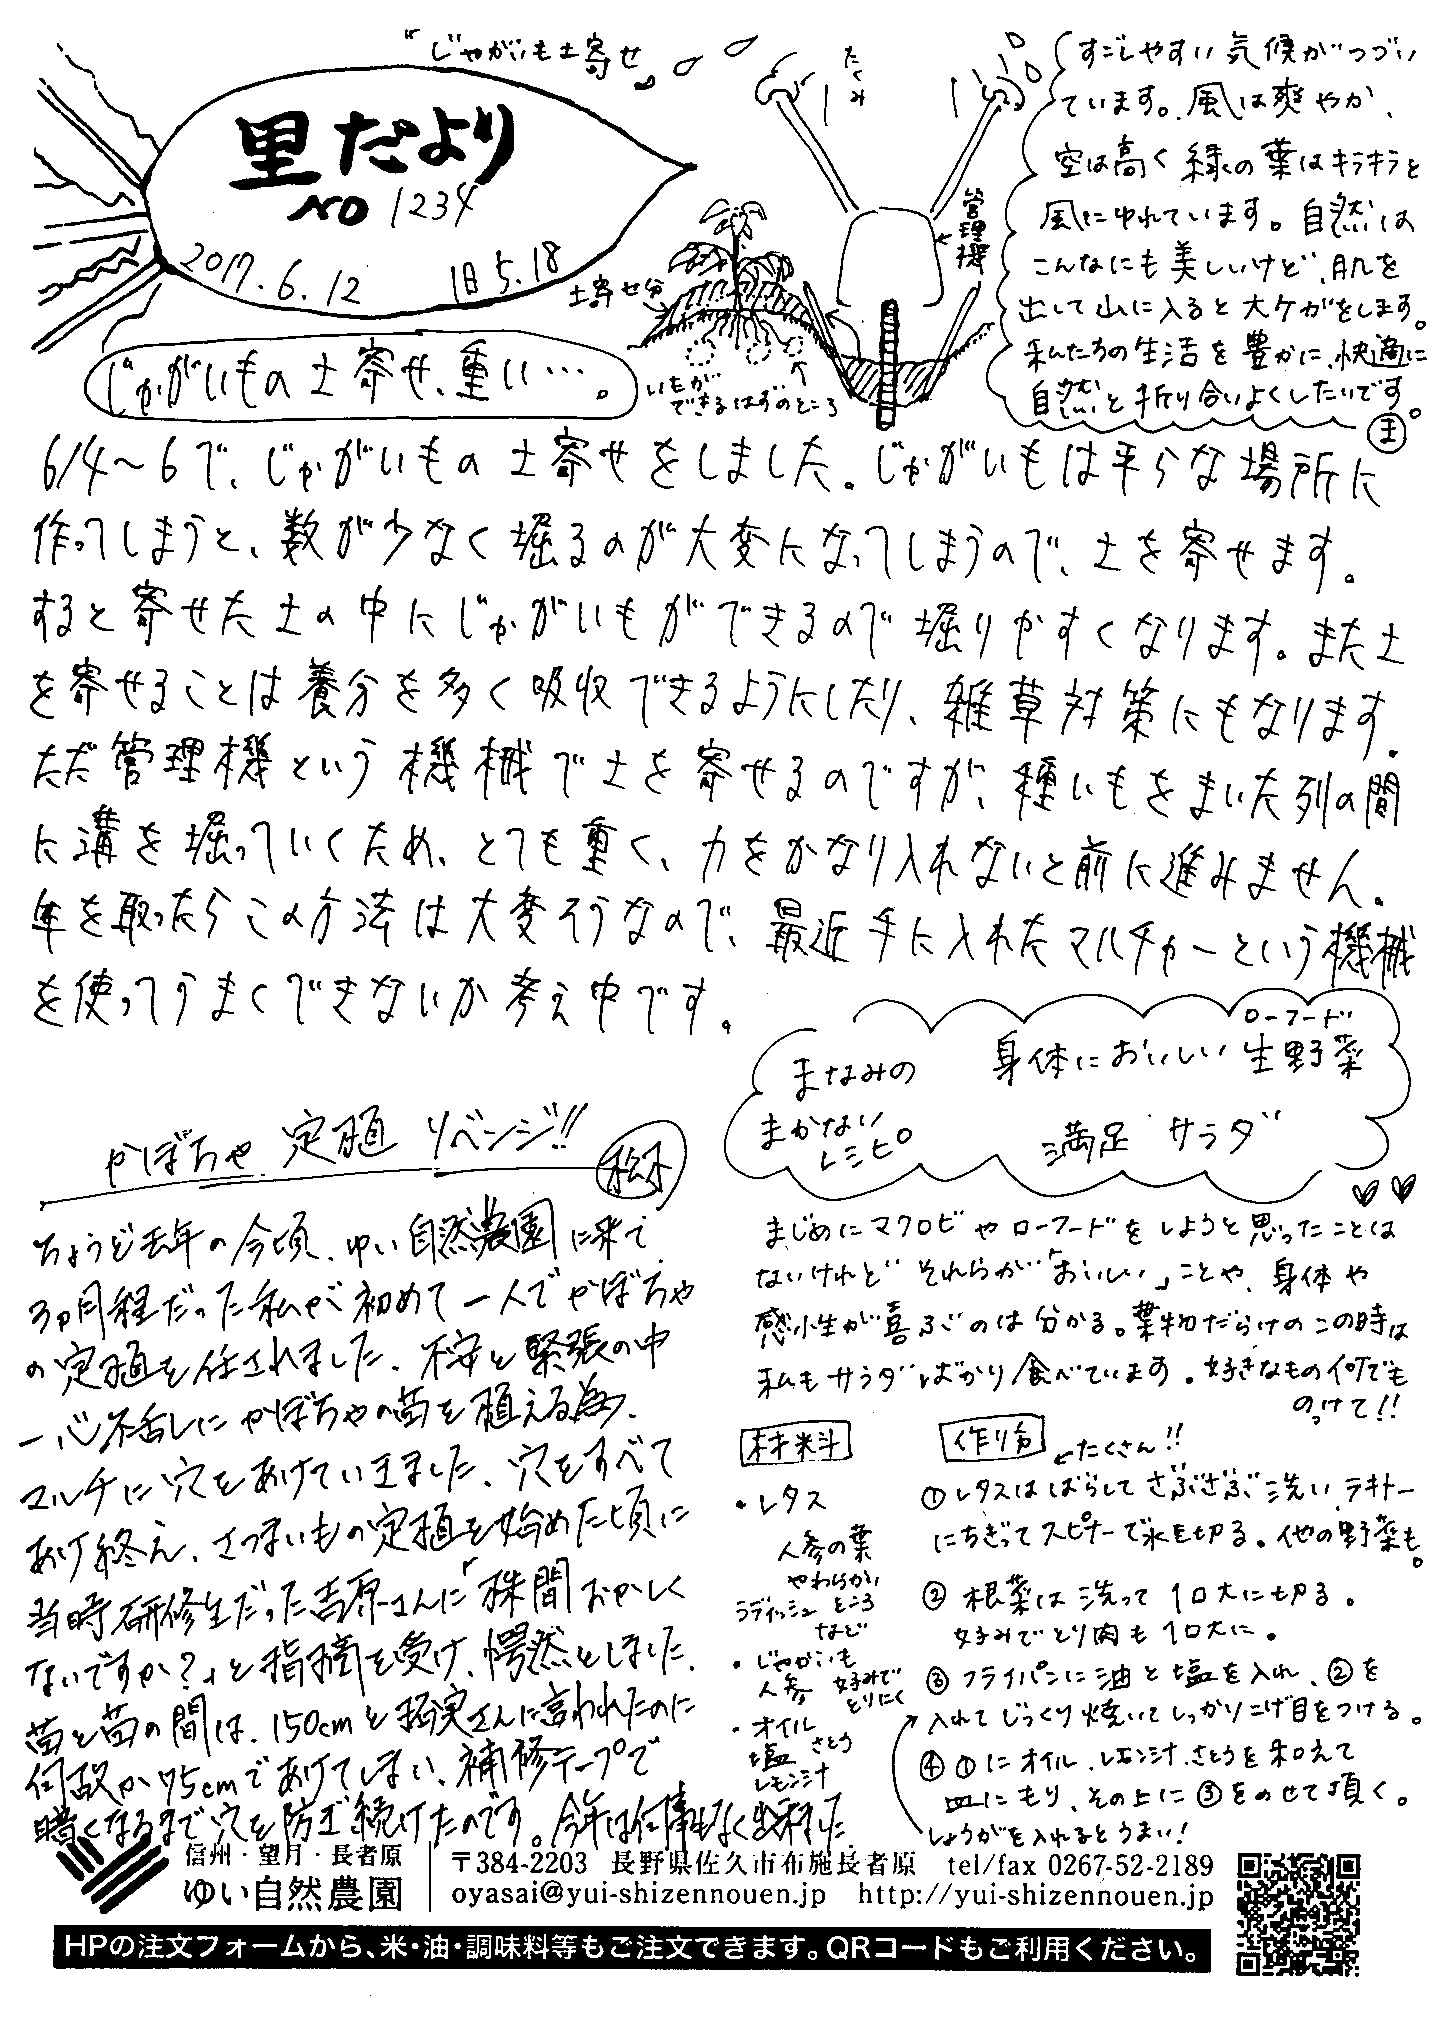 "じゃがいも土寄せ
里だより
NO 1234
2017.6.12 旧5.18
たくみ
管理機
土寄せ分
いもが
できるはずのところ
すごしやすい気候がつづい
ています。風は爽やか、
空は高く緑の葉はキラキラと
風にゆれています。自然は
こんなにも美しいけど、肌を
出して山に入ると大ケガをします。
私たちの生活を豊かに、快適に
自然と折り合いよくしたいです。
じゃがいもの土寄せ、重い…。
6/4〜6で、じゃがいもの土寄せをしました。じゃがいもは平らな場所に
作ってしまうと、数が少なく掘るのが大変になってしまうので、土を寄せます。
すると寄せた土の中にじゃがいもができるので堀りやすくなります。また土
を寄せることは養分を多く吸収できるようにしたり、雑草対策にもなります。
ただ管理機という機械で土を寄せるのですが、種いもをまいた列の間
に溝を堀っていくため、とても重く、力をかなり入れないと前に進みません。
年を取ったらこの方法は大変そうなので、最近手に入れたマルチャーという機械
を使ってうまくできないか考え中です。
かぼちゃ定植リベンジ!!
ちょうど去年の今頃、ゆい自然農園に来て
3ヵ月程だった私が初めて一人でかぼちゃ
の定植を任されました。不安と緊張の中
一心不乱にかぼちゃの苗を植える為、
マルチに穴をあけていきました。穴をすべて
あけ終え、さつまいもの定植を始めた頃に
当時研修生だった吉原さんに「株間おかしく
ないですか?」と指摘を受け、愕然としました。
苗と苗の間は、150cmと拓実さんに言われたのに
何故か75cmであけてしまい、補修テープで
暗くなるまで穴を防ぎ続けたのです。今年は何事もなく出来ました。
まなみの
まかない
レシピ
身体においしい生野菜
ローフード
満足サラダ
まじめにマクロビやローフードをしようと思ったことは
ないけれど それらが「おいしい」ことや、身体や
感性が喜ぶのは分かる。葉物だらけのこの時は
私もサラダばかり食べています。好きなもの何でも
のっけて!!
材料
・レタス
人参の葉
やわらかい
ところ
ラディッシュ
など
・じゃがいも
人参
好みで
とりにく
・オイル
塩 さとう
レモン汁
作り方
←たくさん!!
①レタスはばらしてざぶざぶ洗い、テキトー
にちぎってスピナーで水を切る。他の野菜も。
②根菜は洗って1口大に切る。
好みでとり肉も1口大に。
③フライパンに油と塩を入れ、②を
入れてじっくり焼いてしっかりこげ目をつける。
④①にオイル、レモン汁、さとうを和えて
皿にもり、その上に③をのせて頂く。
しょうがを入れるとうまい!
信州・望月・長者原
ゆい自然農園
〒384-2203 長野県佐久市布施長者原 tel/fax 0267-52-2189
oyasai@yui-shizennouen.jp http://yui-shizennouen.jp
HPの注文フォームから、米・油・調味料等もご注文できます。QRコードもご利用ください。